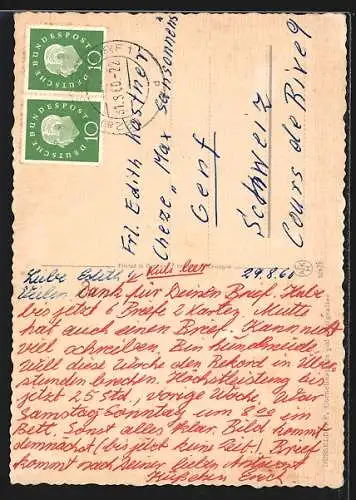 DEUTSCHE BUNDESPOST
10
DEUTSCHE BUNDESPOST
10
Frl. Edith Kastner
Cheze „Max Sansonnens
Genf
Schweiz
Cours de Rive 9
Liebe Edith, Kuli leer 29.8.60
Vielen Dank für Deinen Brief. Habe
bis jetzt 6 Briefe 2 Karten, Mutti
hat auch einen Brief. Kann nicht
viel schreiben. Bin hundmüde.
Will diese Woche den Rekord in Über
stunden brechen. Höchstleistung bis
jetzt 25 Std, vorige Woche. War
Samstag-Sonntag um 8.00 im
Bett. Sonst alles klar. Bild kommt
demnächst (bis jetzt keine Zeit). Brief
kommt nach Deiner lieben Antwort